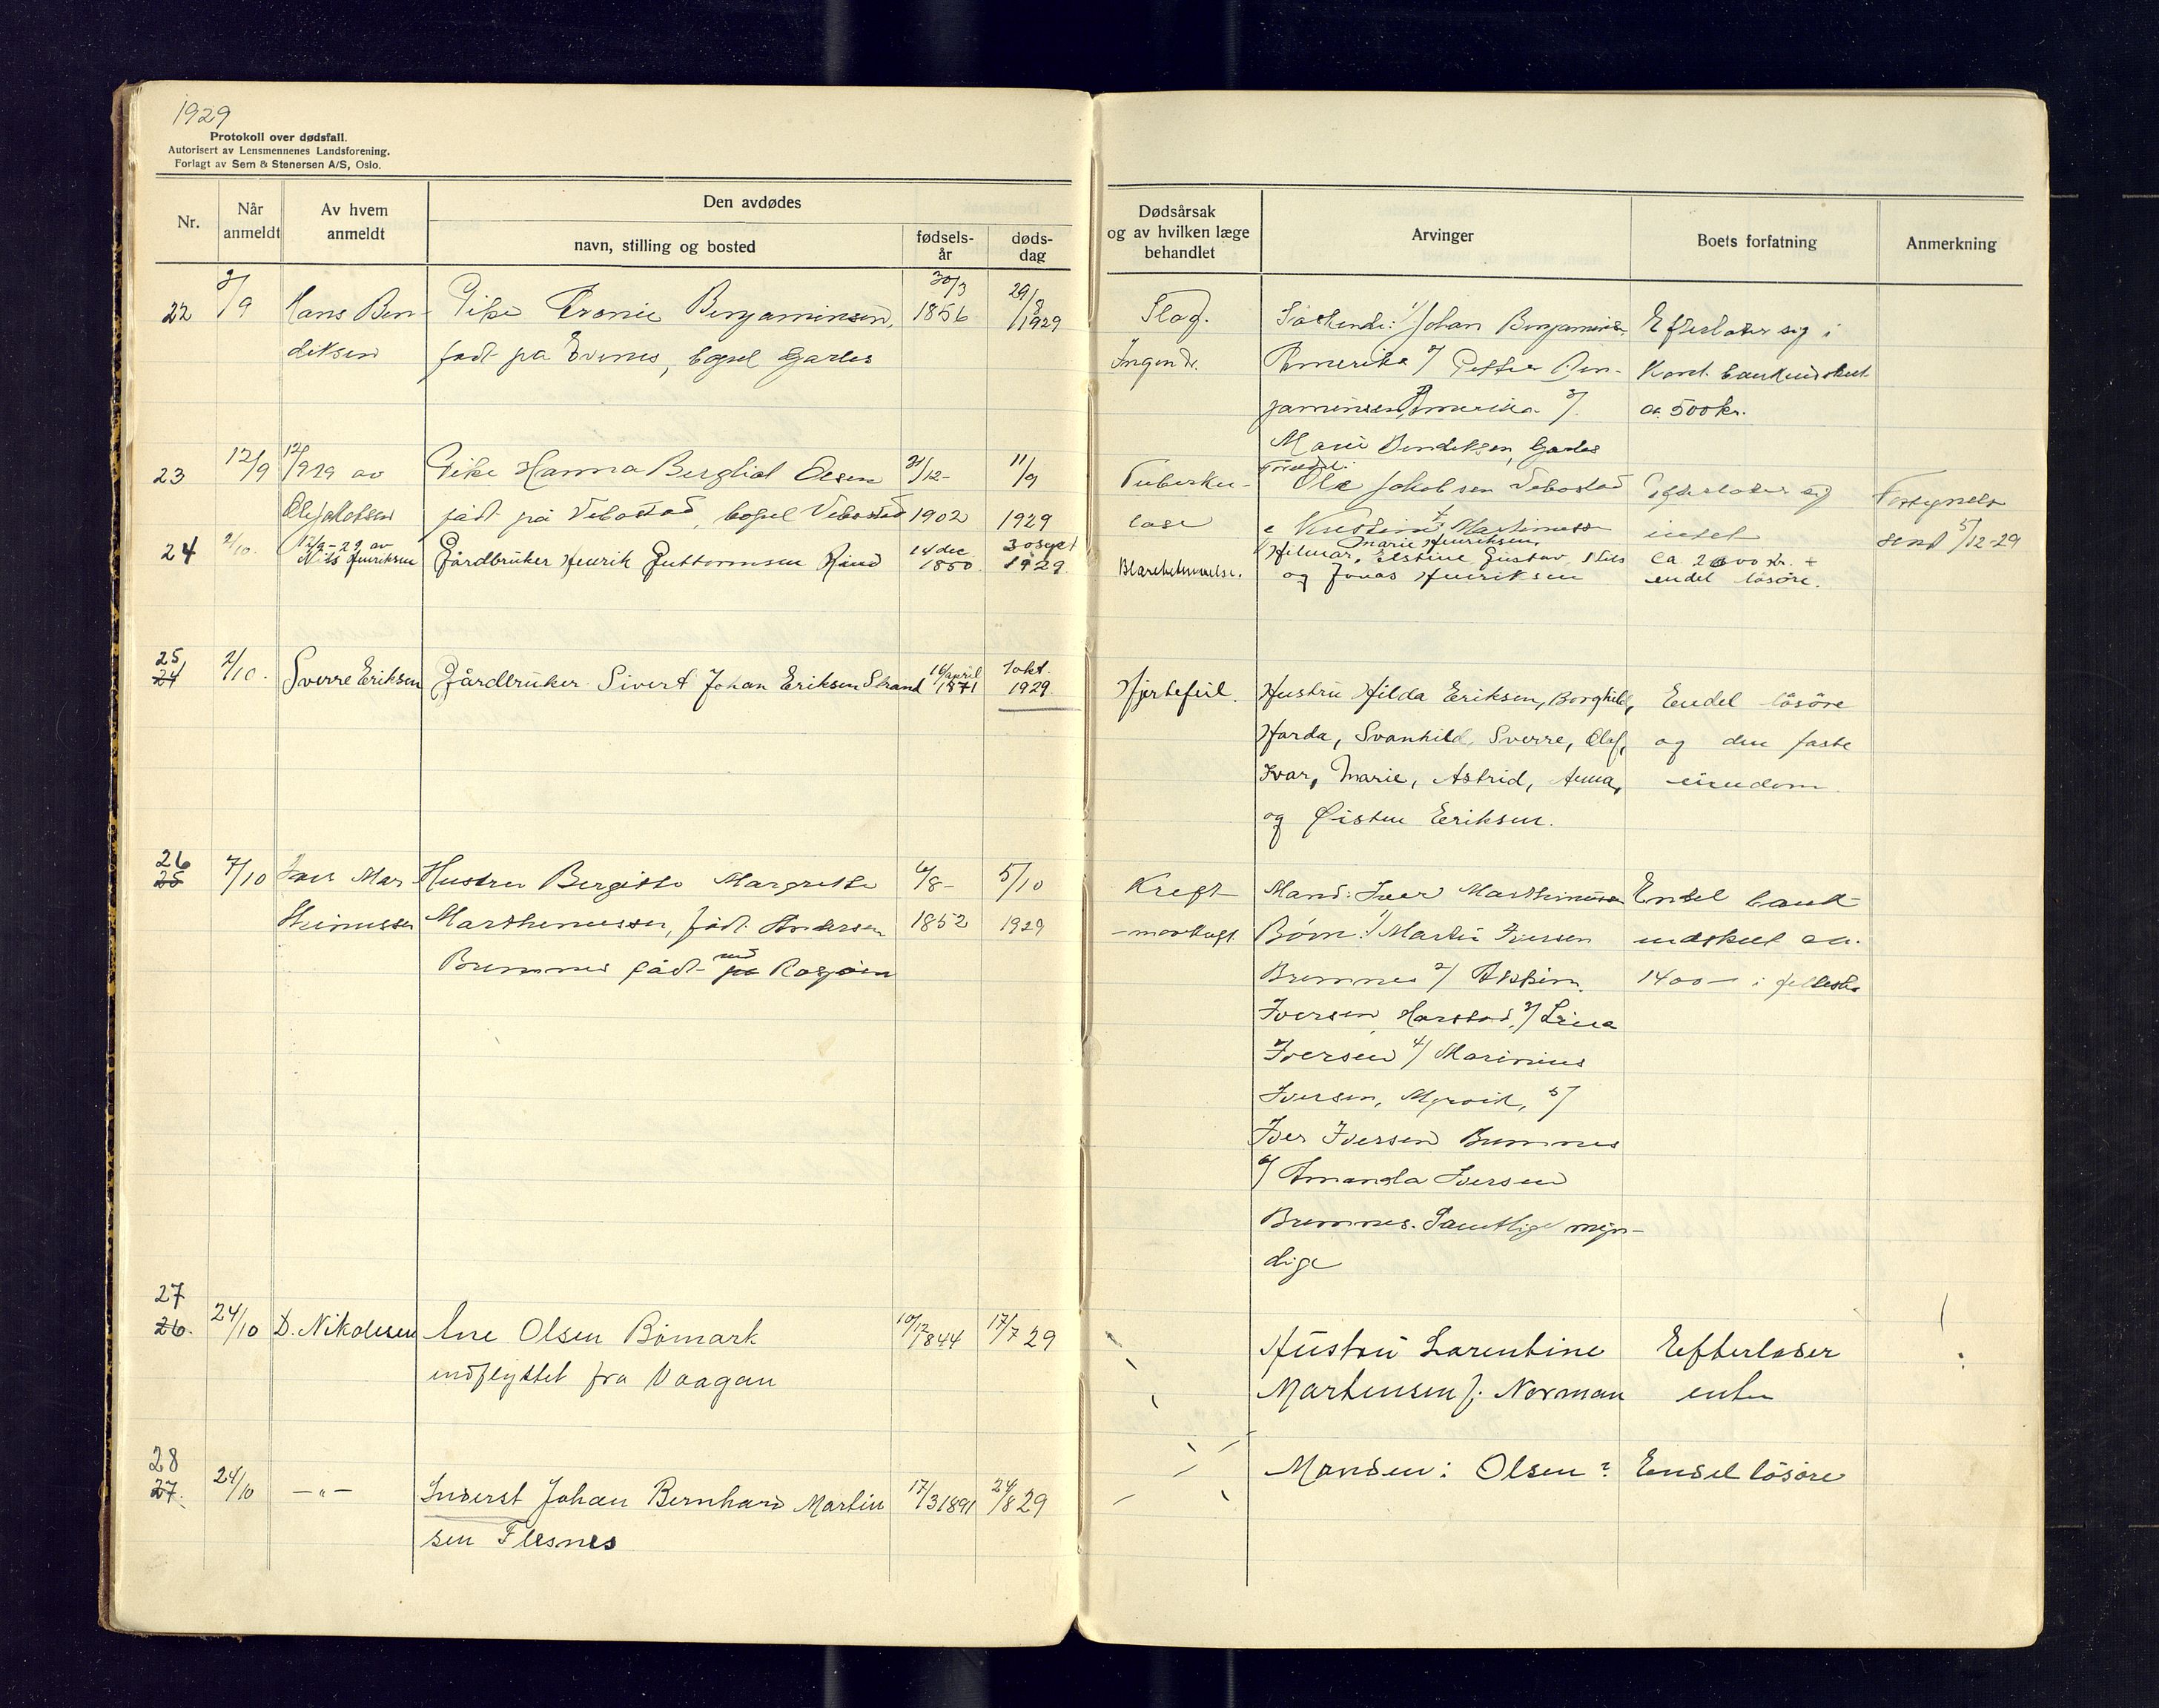 1929
Protokoll over dødsfall.
Autorisert av Lensmennenes Landsforening.
Forlagt av Sem & Stenersen A/S, Oslo.
Nr.
Når anmeldt
Av hvem anmeldt
Den avdødes
navn, stilling og bosted
fødsels-år
døds-dag
Dødsårsak
og av hvilken læge
behandlet
Arvinger
Boets forfatning
Anmerkning
22 3/9 Hans Ben- Pike Benjaminsen, 30/3 1856 29/8 1929 Slag. Søskende: 1/ Johan Benjamins- Efterlater sig i
diksen født på Evenes, bopel Garles Ingen dr. Amerika 2/ Petter Ben- Kont. bankindskud
jaminsen, Amerika 3/ ca. 500 kr.
Marie Bendiksen, Garles
23 12/9 12/9 29 av Pike Hanna Bergliot Olsen 31/12- 11/9 Tuberku- Forældr: Ole Jakobsen Vebostad Efterlater sig
Ole Jakobsen født på Vebostad, bopel Vebostad 1902 1929 lose Martinussen intet send 5/12-29
24 2/10. 12/9-29 av Nils Henriksen Gårdbruker Henrik Guttormsen Rånd 14 dec 1850 30 sept 1929 Blærebetennelse. Marie Henriksen, Hilmar, Elstine, Gustav, Nils ca. 2000 kr. +
og Jonas Henriksen endel løsøre.
25 24 2/10. Sverre Eriksen Gårdbruker Sivert Johan Eriksen Strand 16/april 1871 1 okt. 1929 Hjertefeil. Hustru Hilda Eriksen, Borghild, Endel løsøre
Harda, Svanhild, Sverre, Olaf, og den faste
Ivar, Marie, Astrid, Anna, eiendom.
og Øisten Eriksen.
26 25 7/10 Iver Mar- Hustru Bergitte Margrethe 6/8- 5/10 Kreft- Mand: Iver Marthinussen Endel bank-
thinussen Marthinussen, født Andersen 1852 1929 Børn: 1/ Martin Iversen indskud ca.
Bremnes født ved på Rogsøen Bremnes 2/ 1400 – i fellesbo
Iversen, Harstad, 3/ Lina
Iversen 4/ Marinius
Iversen, Myrvik, 5/
Iver Iversen Bremnes
6/ Amanda Iversen
Bremnes. Samtlige myn-
dige
27 26. 24/10 D. Nikolaisen Ane Olsen Bømark 10/12 1844 17/7 29 Hustru Larentine Efterlader
indflyttet fra Vaagan Martensen f. Norman enke
28 27. 24/10 –"– Inderst Johan Bernhard Martin 17/3 1891 24/8 29 Manden: Olsen? Endel løsøre
sen Flesnes